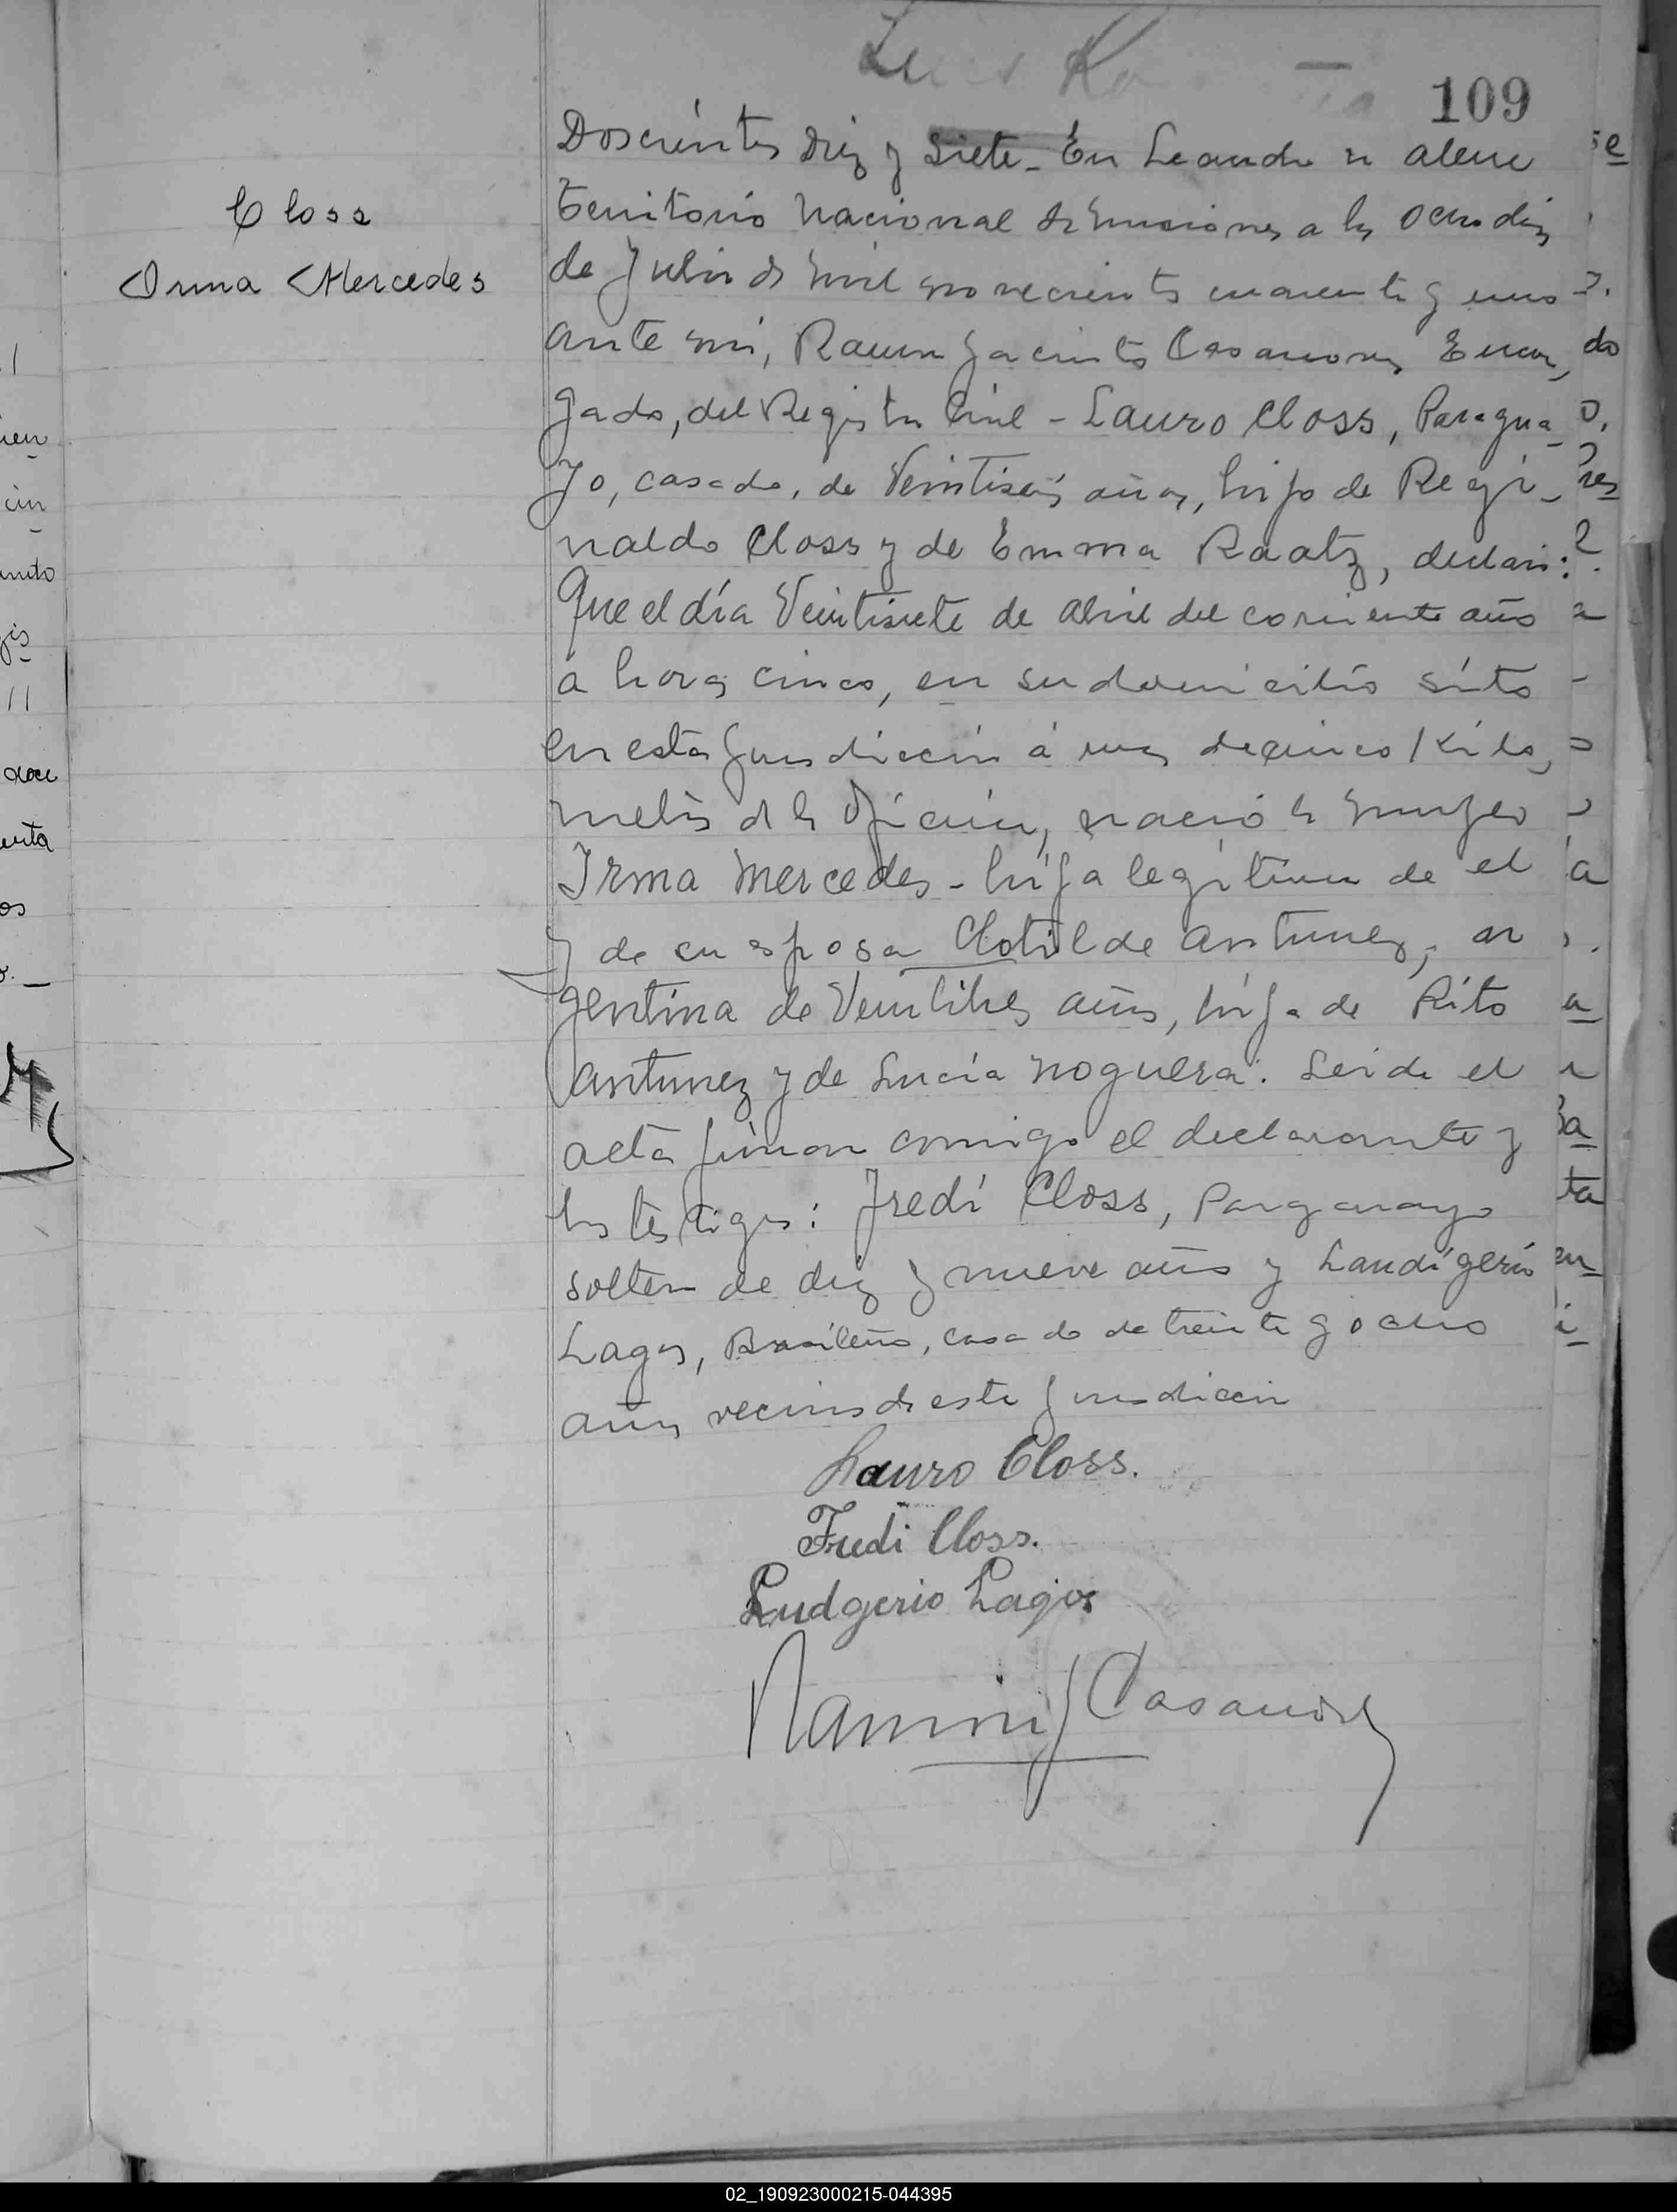 109
Closs
Irma Mercedes
Doscientos diez y siete - En Leandro N Alem
Territorio Nacional de Misiones a los ocho días
de Julio de mil novecientos cuarenta y uno
ante mi, Ramon Jacinto Casanova, Encar
gado, del Registro Civil - Lauro Closs, Paragua_
yo, casado, de Veintiseis años, hijo de Regi_
naldo Closs y de Emma Raatz, declaró:
Que el día Veintisiete de Abril del corriente año
á horas cinco, en su domicilio sito
en esta Jurisdicción á unos de cinco Kiló_
metros de la Oficina, nació la mujer
Irma Mercedes - hija legitima de el
y de su esposa Clotilde Antunez, ar
gentina de Veintitres años, hija de Rito
Antunez y de Lucía Noguera. Leida el
acta firman conmigo el declarante y
los testigos: Fredi Closs, Paraguayo
soltero de diez y nueve años y Laudigerio
Lagos, Brasileño, casado de treinta y ocho
años vecinos de esta Jurisdiccion
Lauro Closs.
Fredi Closs.
Ludgerio Lagos
Ramon J Casanova
02_190923000215-044395